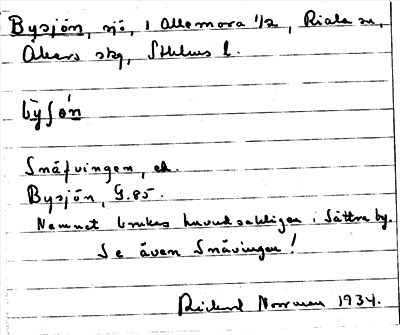 Bysjön, sjö, i Allemora 1/2, Riala sn,
Åkers skg, Sthlms l.
bȳʃǿn
Snåfvingen, ek.
Bysjön, G.85.
Namnet brukas huvudsakligen i Sättra by.
Se även Snåvingen!
Rickard Norrman 1934.